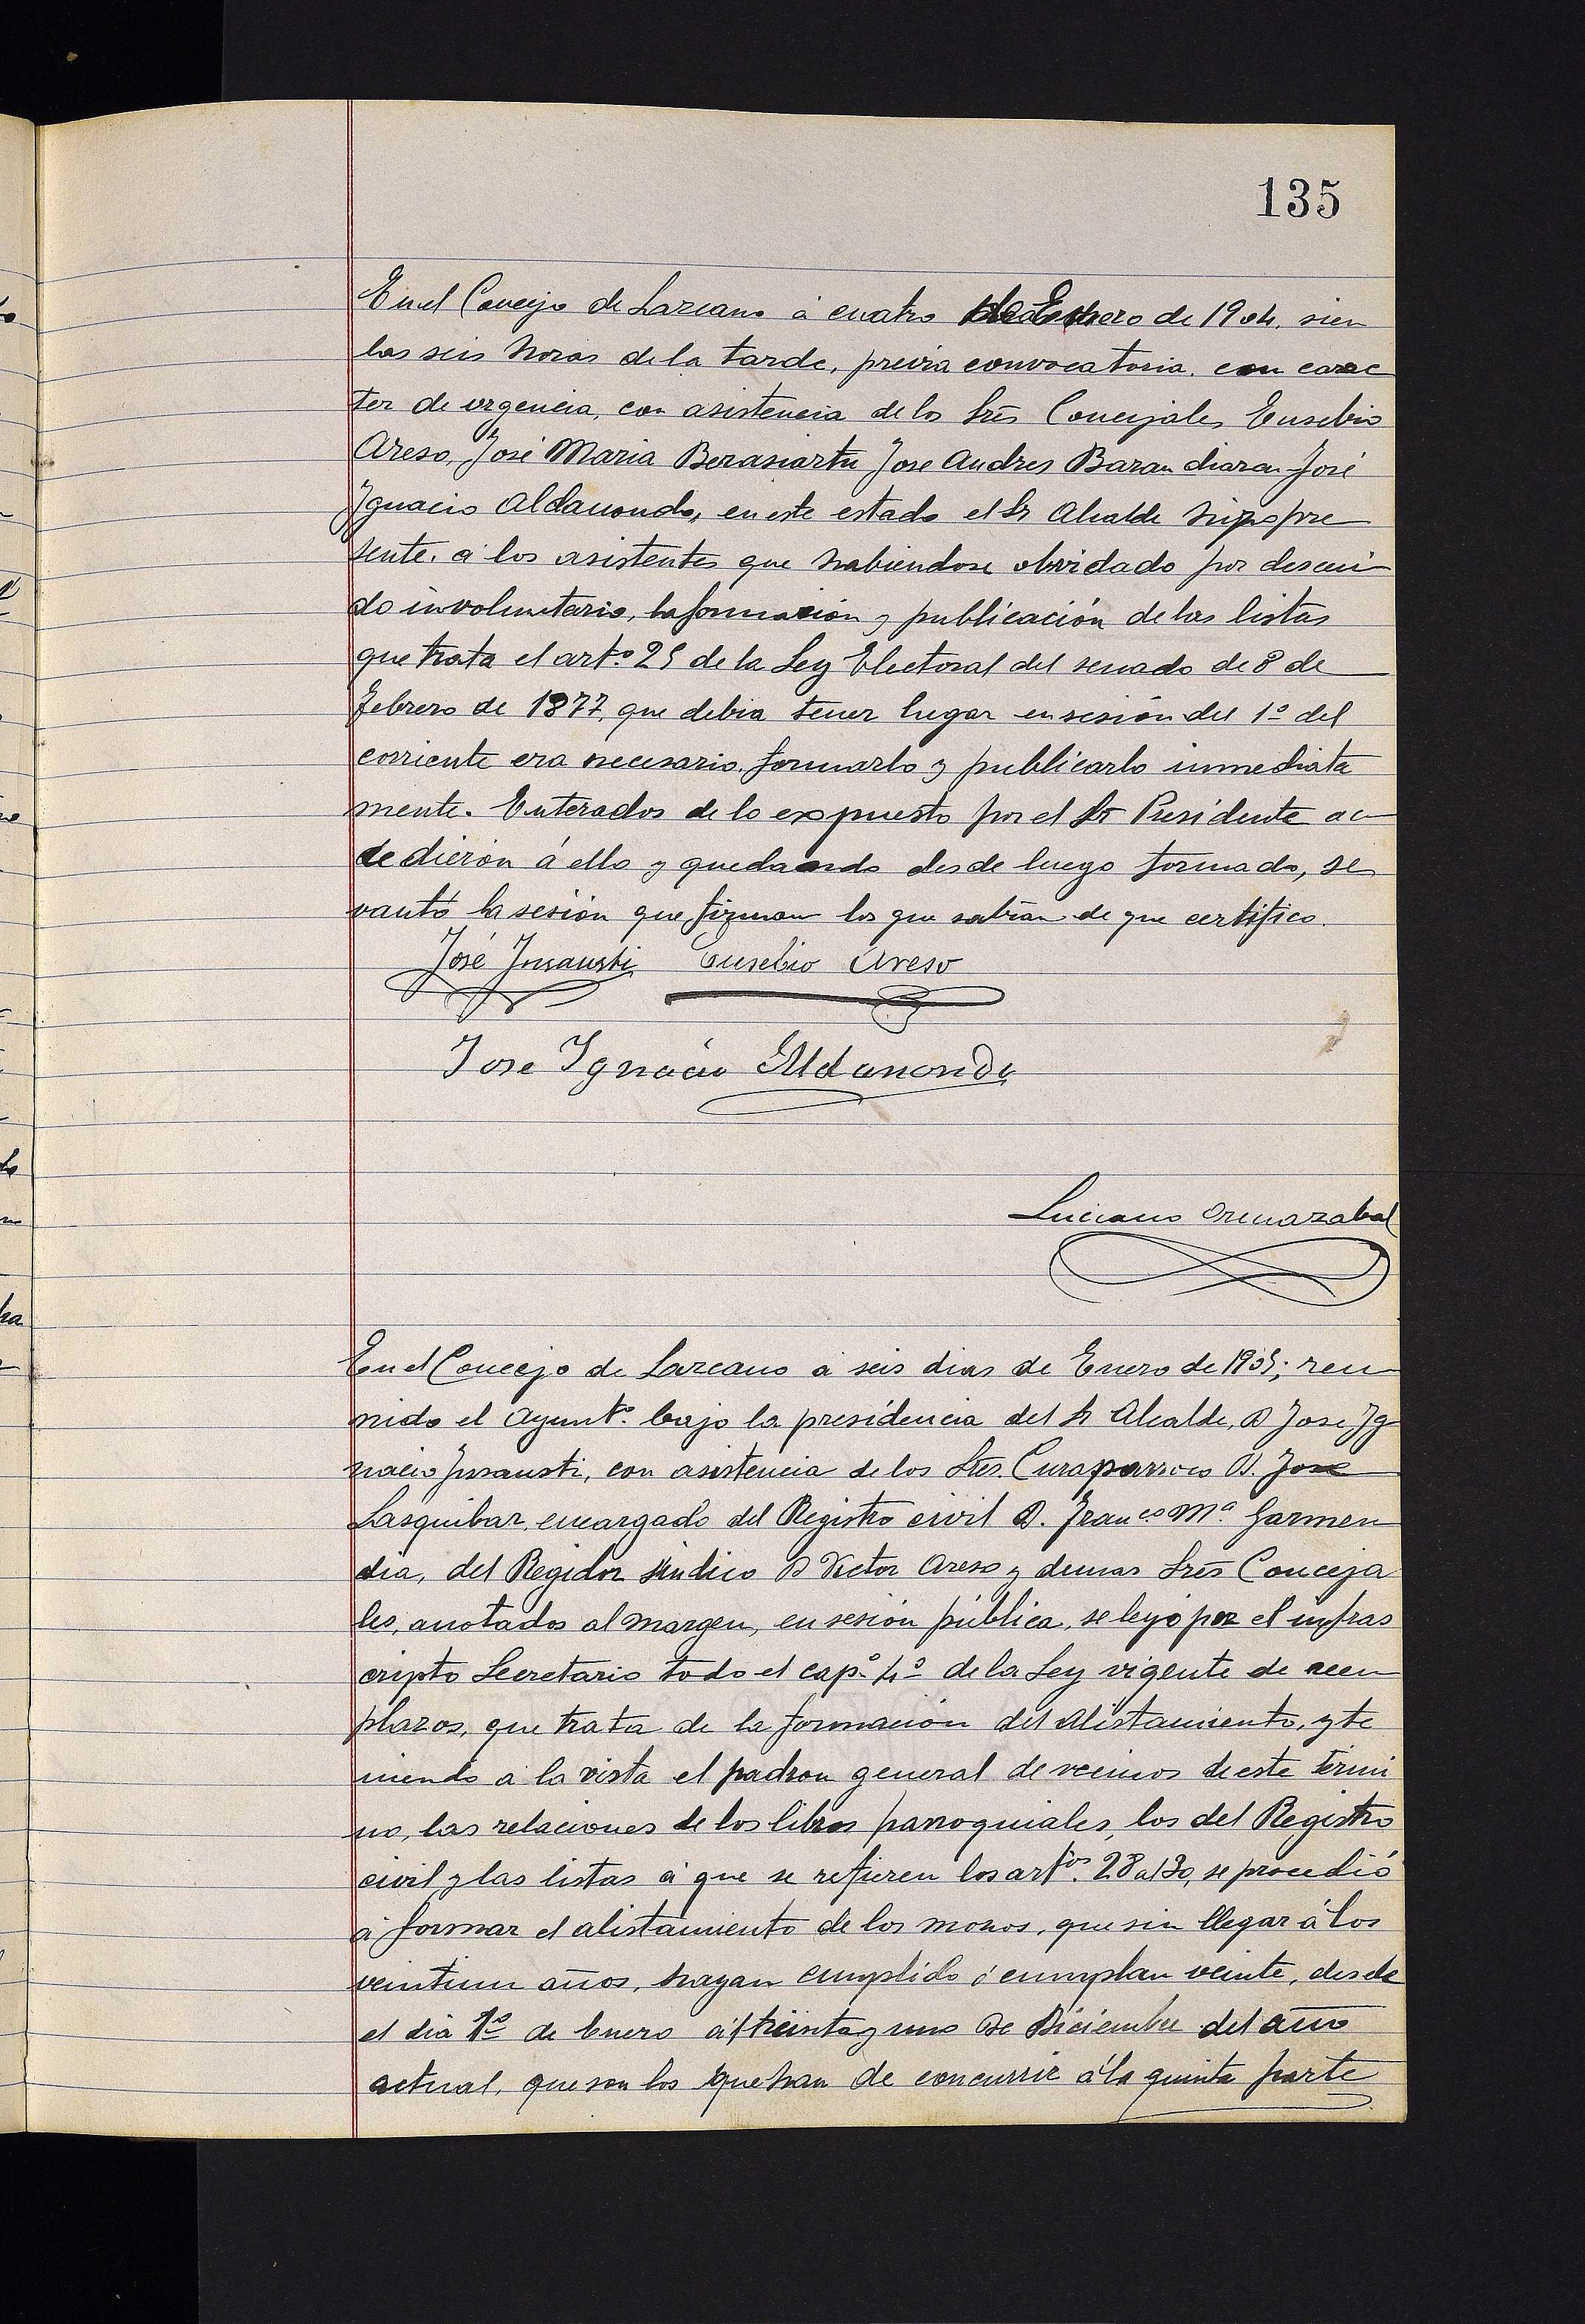 135
En el Concejo de Lazcano á cuatro de Enero de 1904. sien
las seis horas de la tarde, previa convocatoria. con carac
ter de urgencia, con asistencia de los Srēs Concejales Eusebio
Areso, José Maria Berasiartu Jose Andres Barandiaran José
Ignacio Aldanondo, en este estado el Sr Alcalde hizo pre
sente. á los asistentes que habiendose olvidado por descui
do involuntario, la formación y publicación de las listas
que trata el artº 25 de la Ley Electoral del senado de 8 de
Febrero de 1877, que debia tener lugar en sesión del 1º del
corriente era necesario. formarlo y publicarlo inmediata
mente. Enterados de lo expuesto por el Sr Presidente ac
cedieron á ello y quedando desde luego formado, se
vantó la sesión que firman los que sabian de que certifico.
José Insausti Eusebio Areso
Jose Ignacio Aldanondo
Luciano Ormazabal
En el Concejo de Lazcano á seis dias de Enero de 1905; reu
nido el Ayuntº. bajo la presidencia del Sr Alcalde, D Jose Ig
nacio Insausti, con asistencia de los Srēs. Curaparroco D. Jose
Lasquibar, encargado del Registro civil D. Franco Mª Garmen
dia, del Regidor Sindico D Victor Areso y demas Srēs Conceja
les, anotados al margen, en sesión pública, se leyó por el infras
cripto Secretario todo el capº 4º de la Ley vigente de reem
plazos, que trata de la formación del Alistamiento, y te
niendo á la vista el padron general de vecinos de este térmi
no, las relaciones de los libros parroquiales, los del Registro
civil y las listas á que se refieren los artos. 28 al 30, se procedió
á formar el alistamiento de los mozos, que sin llegar á los
veintiun años, hayan cumplido ó cumplan veinte, desde
el dia 1º de Enero al treinta y uno de Diciembre del año
actual, que son los que han de concurrir á la quinta parte